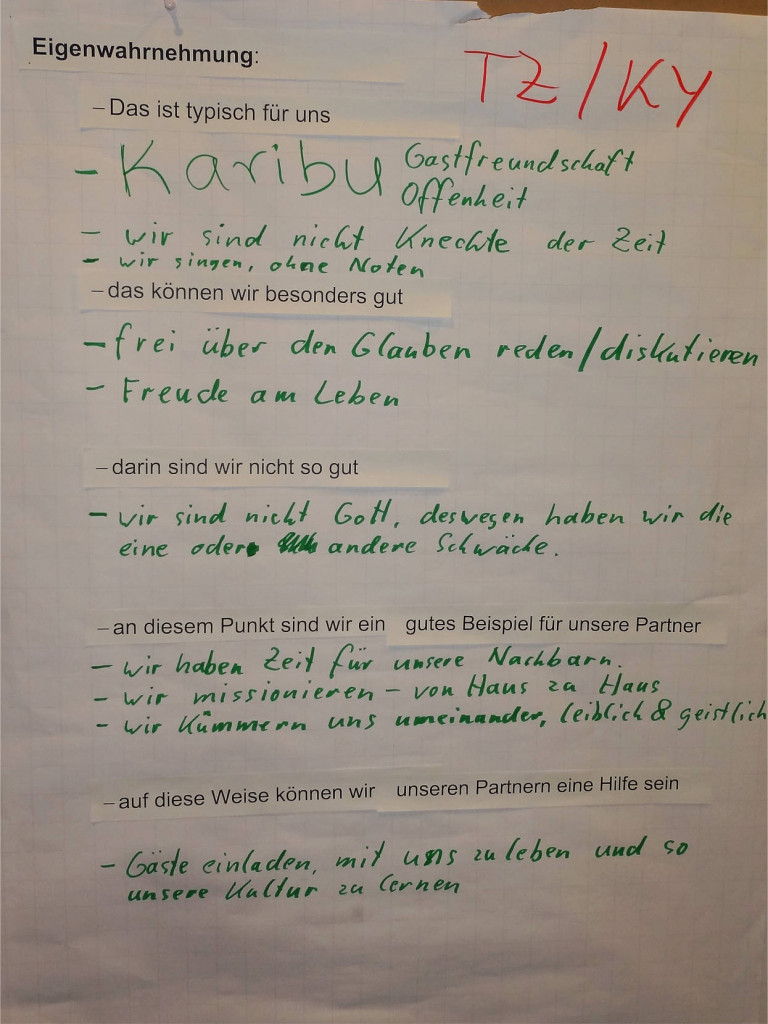 Eigenwahrnehmung:
TZ/KY
– Das ist typisch für uns
- Karibu Gastfreundschaft
Offenheit
- wir sind nicht Knechte der Zeit
- wir singen, ohne Noten
– das können wir besonders gut
- frei über den Glauben reden/diskutieren
- Freude am Leben
– darin sind wir nicht so gut
- wir sind nicht Gott, deswegen haben wir die
eine oder andere Schwäche.
– an diesem Punkt sind wir ein gutes Beispiel für unsere Partner
- wir haben Zeit für unsere Nachbarn.
- wir missionieren - von Haus zu Haus
- wir kümmern uns umeinander, leiblich & geistlich
– auf diese Weise können wir unseren Partnern eine Hilfe sein
- Gäste einladen, mit uns zu leben und so
unsere Kultur zu lernen